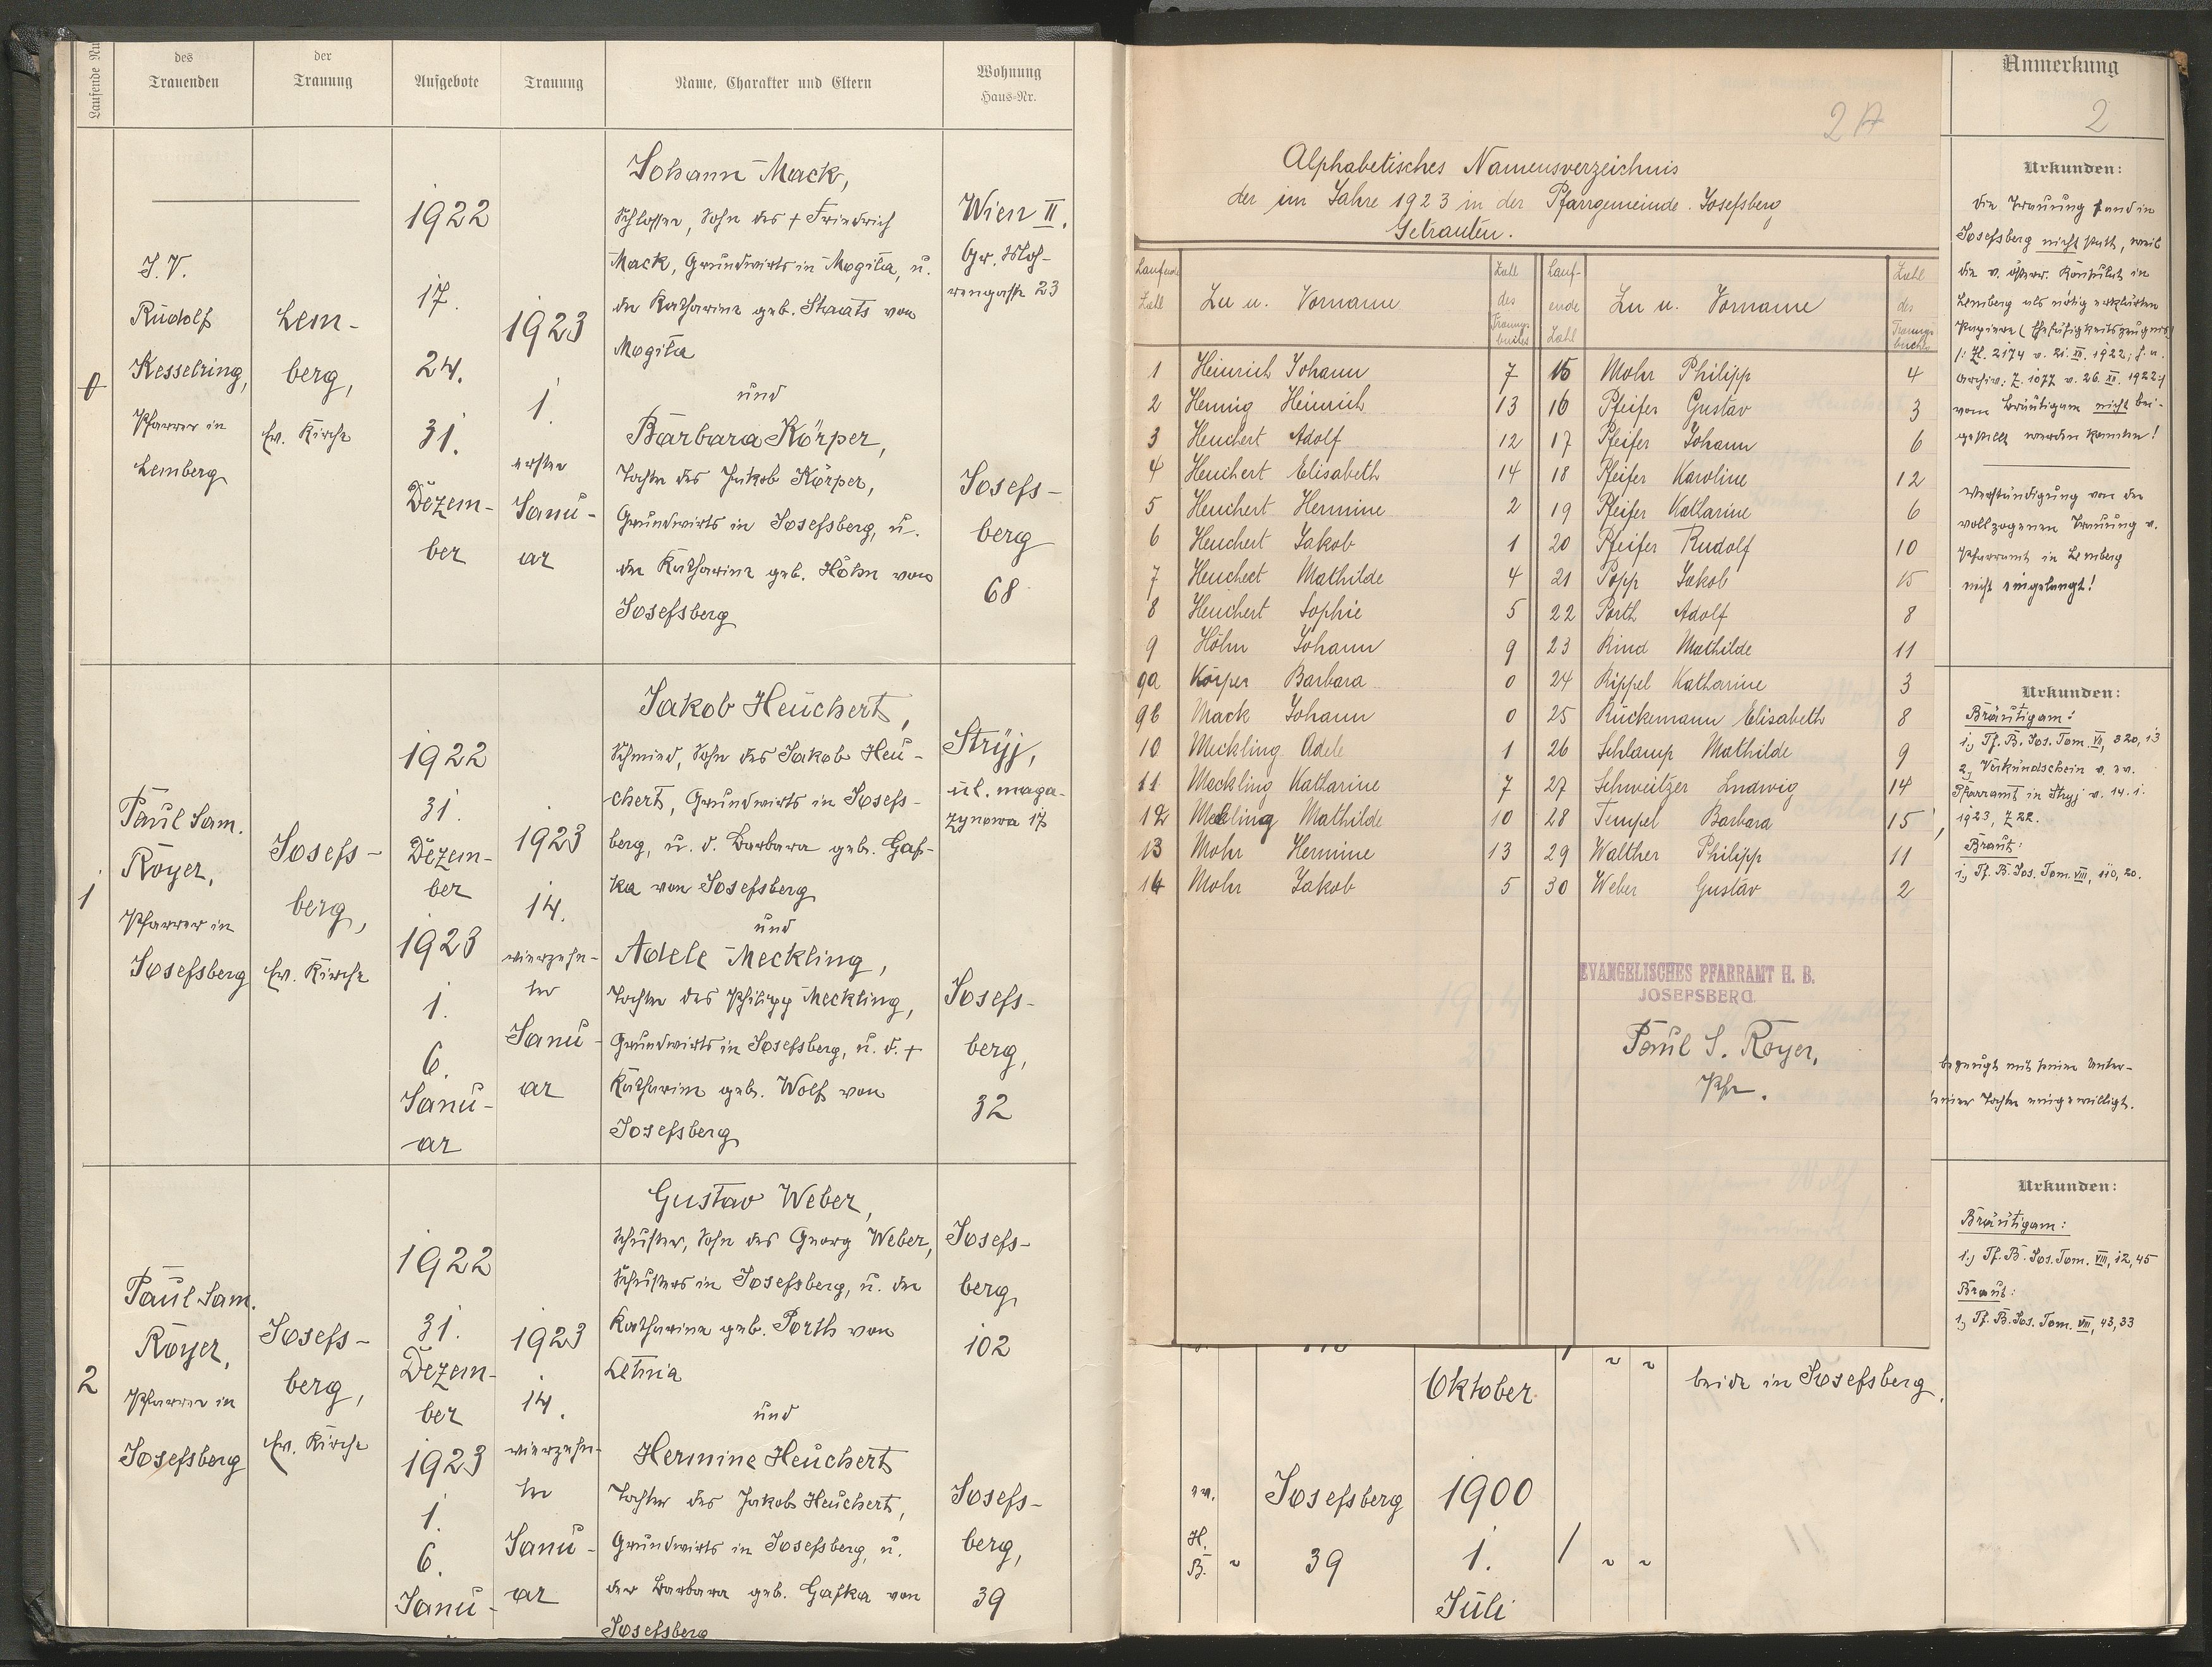 Laufende Nu
des
Trauenden
der
Trauung
Aufgebote
Trauung
Name, Charakter und Eltern
Wohnung
Haus=Nr.
0
I. V.
Rudolf
Kesselring,
Pfarrer in
Lemberg
Lem-
berg,
Ev. Kirche
1922
17.
24.
31.
Dezem-
ber
1923
1.
erster
Janu-
ar
Johann Mack,
Schlosser, Sohn des + Friedrich
Mack, Grundwirts in Mogiła, u.
der Katharina geb. Staats von
Mogiła
und
Barbara Körper,
Tochter des Jakob Körper,
Grundwirts in Josefsberg, u.
der Katharina geb. Höhn von
Josefsberg
Wien II.
Gr. Moh-
rengasse 23
Josefs-
berg
68
1
Paul Sam.
Royer,
Pfarrer in
Josefsberg
Josefs-
berg,
Ev. Kirche
1922
31.
Dezem-
ber
1923
1.
6.
Janu-
ar
1923
14.
vierzehn-
ter
Janu-
ar
Jakob Heuchert,
Schmied, Sohn des Jakob Heu-
chert, Grundwirts in Josefs-
berg, u. d. Barbara geb. Gaf-
ka von Josefsberg
und
Adele Meckling,
Tochter des Philipp Meckling,
Grundwirts in Josefsberg, u. d. +
Katharina geb. Wolf von
Josefsberg
Stryj,
ul. maga-
zynowa 17
Josefs-
berg,
32
2
Paul Sam.
Royer,
Pfarrer in
Josefsberg
Josefs-
berg,
Ev. Kirche
1922
31.
Dezem-
ber
1923
1.
6.
Janu-
1923
14.
vierzehn-
ter
Janu-
ar
Gustav Weber,
Schuster, Sohn des Georg Weber,
Schusters in Josefsberg, u. der
Katharina geb. Porth von
Letnia
und
Hermine Heuchert
Tochter des Jakob Heuchert,
Grundwirts in Josefsberg, u.
der Barbara geb. Gafka von
Josefsberg
Josefs-
berg
102
Josefs-
berg,
39
2A
Alphabetisches Namensverzeichnis
der im Jahre 1923 in der Pfarrgemeinde Josefsberg
Getrauten.
Laufende Zahl
Zu u. Vorname
Zahl des Trauungsbuches
Laufende Zahl
Zu u. Vorname
Zahl des Trauungsbuches
1 Heinrich Johann 7
2 Hennig Heinrich 13
3 Heuchert Adolf 12
4 Heuchert Elisabeth 14
5 Heuchert Hermine 2
6 Heuchert Jakob 1
7 Heuchert Mathilde 4
8 Heuchert Sophie 5
9 Höhn Johann 9
9a Körper Barbara 0
9b Mack Johann 0
10 Meckling Adele 1
11 Meckling Katharine 7
12 Meckling Mathilde 10
13 Mohr Hermine 13
14 Mohr Jakob 5
15 Mohr Philipp 4
16 Pfeifer Gustav 3
17 Pfeifer Johann 6
18 Pfeifer Karoline 12
19 Pfeifer Katharine 6
20 Pfeifer Rudolf 10
21 Popp Jakob 15
22 Porth Adolf 8
23 Rind Mathilde 11
24 Rippel Katharine 3
25 Ruckemann Elisabeth 8
26 Schlamp Mathilde 9
27 Schweitzer Ludwig 14
28 Tempel Barbara 15
29 Walther Philipp 11
30 Weber Gustav 2
EVANGELISCHES PFARRAMT H. B.
JOSEFSBERG
Paul S. Royer,
Pfr.
Oktober
beide in Josefsberg.
ev.
H.
B.
Josefsberg
39
1900
1.
Juli
Anmerkung
2
Urkunden:
Die Trauung fand in
Josefsberg nicht statt, weil
die v. österr. Konsulat in
Lemberg als nötig erklärten
Papiere (Ehefähigkeitszeugnis
/: Zl. 2174 v. 21. XII. 1922; s. u.
Archiv: Z. 1077 v. 26. XII. 1922:/
vom Bräutigam nicht bei-
gestellt werden konnten!
Verständigung von der
vollzogenen Trauung v.
Pfarramt in Lemberg
nicht eingelangt!
Urkunden:
Bräutigam:
1.) Tf. B. Jos. Tom. VI, 320, 13
2.) Verkündschein v. ev.
Pfarramt in Stryj v. 14. 1.
1923, Z 22.
Braut:
1.) Tf. B. Jos. Tom. VIII, 110, 20.
bezeugt mit seiner Unter-
seiner Tochter eingewilligt.
Urkunden:
Bräutigam:
1.) Tf. B. Jos. Tom. VIII, 12, 45
Braut:
1.) Tf. B. Jos. Tom. VIII, 43, 33